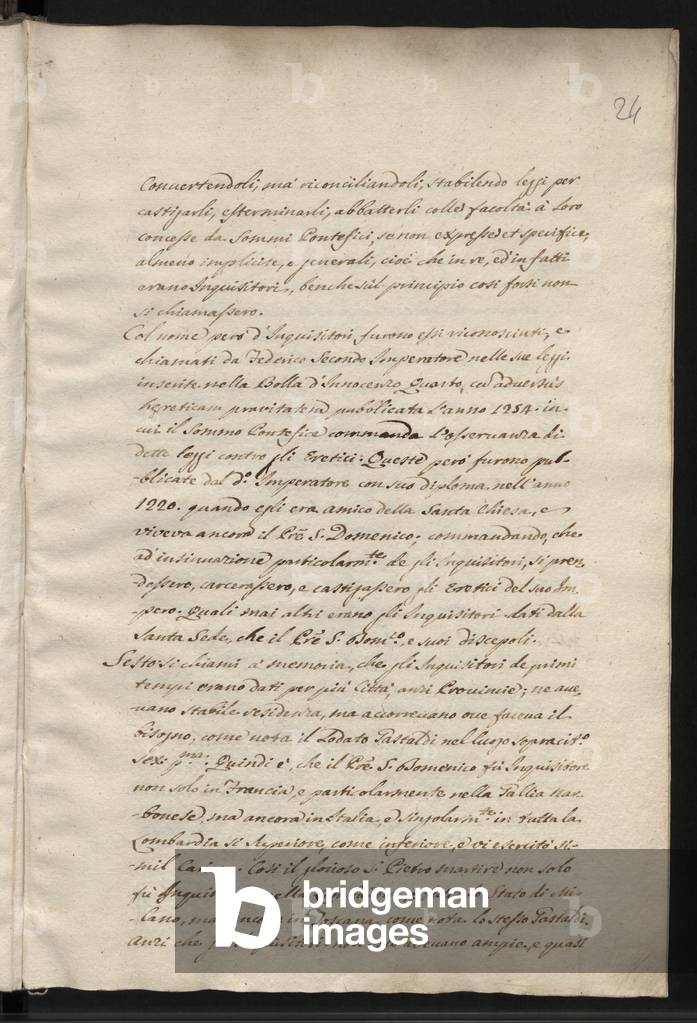 24
Convertendoli, ma' riconciliandoli, stabilendo leggi per
castigarli, esterminarli, abbatterli colle facolta' à loro
concesse da Sommi Pontefici, se non expresse et specifice,
almeno implicite, e generali, cioè che in re, ed in fatti
erano Inquisitori, benche sul principio così forsi non
si chiamassero.
Col nome però d'Inquisitori furono essi riconosciuti, e
chiamati da Federico Secondo Imperatore nelle sue leggi
inserite nella Bolla d'Innocenzo Quarto, cu' adversus
hereticam pravitatem pubblicata l'anno 1254. in
cui il Sommo Pontefice commanda l'osservanza di
dette leggi contro gli Eretici. Queste però furono pub-
-blicate dal d.º Imperatore con suo diploma nell'anno
1220. quando egli era amico della Santa Chiesa, e
viveva ancora il Pre S. Domenico; commandando, che
ad insinuazione particolarm.te de gli Inquisitori, si pren-
dessero, carcerassero, e castigassero gli Eretici del suo Im-
-pero. Quali mai altri erano gli Inquisitori dati dalla
Santa Sede, che il Pre S. Dom.co, e suoi discepoli.
Sesto si chiami a' memoria, che gli Inquisitori de primi
tempi erano dati per più Città, anzi Provincie; ne ave-
-vano stabile residenza, ma accorrevano ove faceva il
bisogno, come nota il Lodato Pastaldi nel luogo sopracit.º
sex. p.ma. Quindi è, che il Pre S. Domenico fù Inquisitore
non solo in Francia, e particolarmente nella Gallia Nar-
-bonese, ma ancora in Italia, e singolarm.te in tutta la
Lombardia sì superiore, come inferiore, e vi esercitò si-
-mil Così il glorioso S. Pietro martire non solo
fù Stato di Mi-
-lano, ma in Toscana, come nota lo stesso Pastaldi.
Anzi che ampie, e quasi
b bridgeman
images